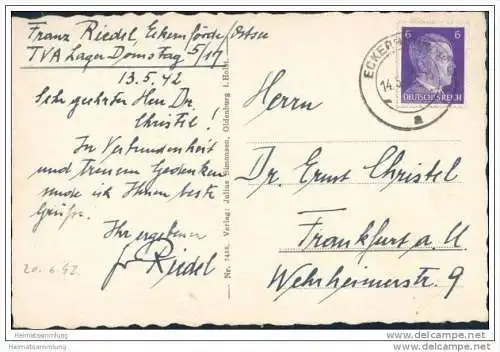 Franz Riedel, Eckernförde/Ostsee
TVA Lager Domstag 5/17
13.5.42
Sehr geehrter Herr Dr.
Christel!
In Verbundenheit
und treuem Gedenken
sende ich Ihnen beste
Grüße.
Ihr ergebener
Fr Riedel
20.6.42
Nr. 7428. Verlag: Julius Simonsen, Oldenburg i. Holst.
6 6
DEUTSCHES REICH
ECKERN
14.5
a
Herrn
Dr. Ernst Christel
Frankfurt a. M
Wehrheimerstr. 9
Heimatsammlung
www.heimatsammlung.de
Heimatsammlung
www.heimatsammlung.de